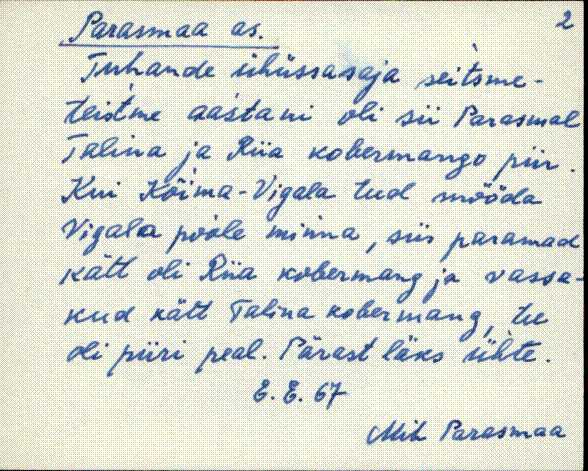 Parasmaa as.
2
Tuhande ühüssasaja seitsme-
teistme aastani oli sii Parasmal
Talina ja Riia kobermango piir.
Kui Kõima-Vigala tud mööda
Vigala poole minna, siis paramad
kätt oli Riia kobermang ja vassa-
kud kätt Talina kobermang, tee
oli piiri peal. Pärast läks ühte.
E. E. 67
Mih Parasmaa